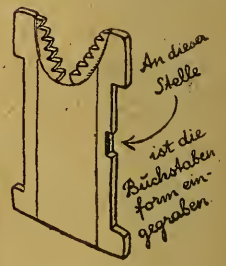 An dieser
Stelle
ist die
Buchstaben
form ein-
gegraben.